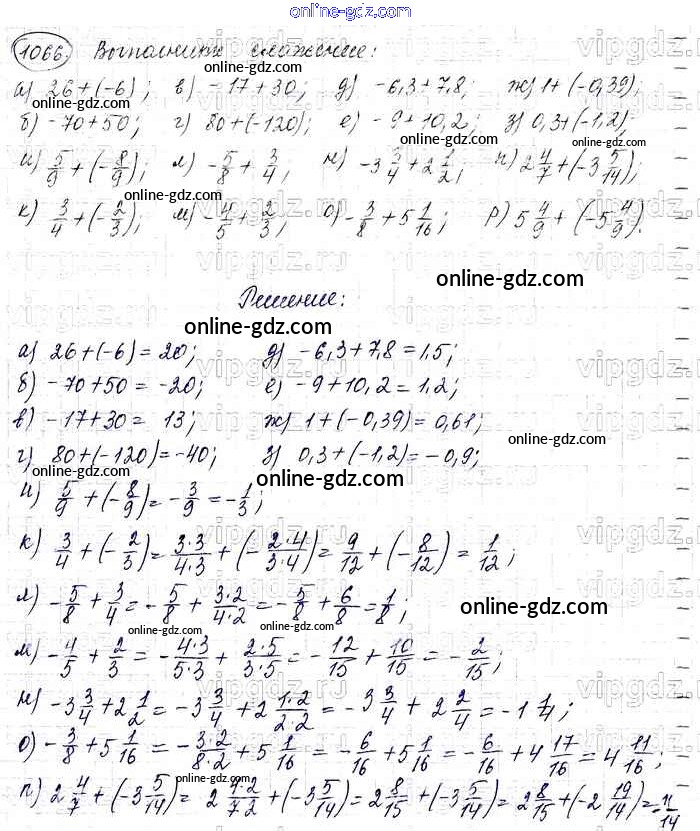 online-gdz.com
online-gdz.com
1066. Выполните сложение:
а) 26+(-6); в) -17+30; д) -6,3+7,8; ж) 1+(-0,39);
б) -70+50; г) 80+(-120); е) -9+10,2; з) 0,3+(-1,2);
и) 5/9 + (-8/9); л) -5/8 + 3/4; н) -3 3/4 + 2 1/2; п) 2 4/7 + (-3 5/14);
к) 3/4 + (-2/3); м) -4/5 + 2/3; о) -3/8 + 5 1/16; р) 5 4/9 + (-5 4/9).
online-gdz.com
Решение:
online-gdz.com
а) 26+(-6) = 20; д) -6,3+7,8 = 1,5;
б) -70+50 = -20; е) -9+10,2 = 1,2;
в) -17+30 = 13; ж) 1+(-0,39) = 0,61;
г) 80+(-120) = -40; з) 0,3+(-1,2) = -0,9;
online-gdz.com
и) 5/9 + (-8/9) = -3/9 = -1/3;
к) 3/4 + (-2/3) = 3·3/4·3 + (-2·4/3·4) = 9/12 + (-8/12) = 1/12;
л) -5/8 + 3/4 = -5/8 + 3·2/4·2 = -5/8 + 6/8 = 1/8;
online-gdz.com
м) -4/5 + 2/3 = -4·3/5·3 + 2·5/3·5 = -12/15 + 10/15 = -2/15;
н) -3 3/4 + 2 1/2 = -3 3/4 + 2 1·2/2·2 = -3 3/4 + 2 2/4 = -1 1/4;
о) -3/8 + 5 1/16 = -3·2/8·2 + 5 1/16 = -6/16 + 5 1/16 = -6/16 + 4 17/16 = 4 11/16;
п) 2 4/7 + (-3 5/14) = 2 4·2/7·2 + (-3 5/14) = 2 8/15 + (-3 5/14) = 2 8/15 + (-2 19/14) = -11/14